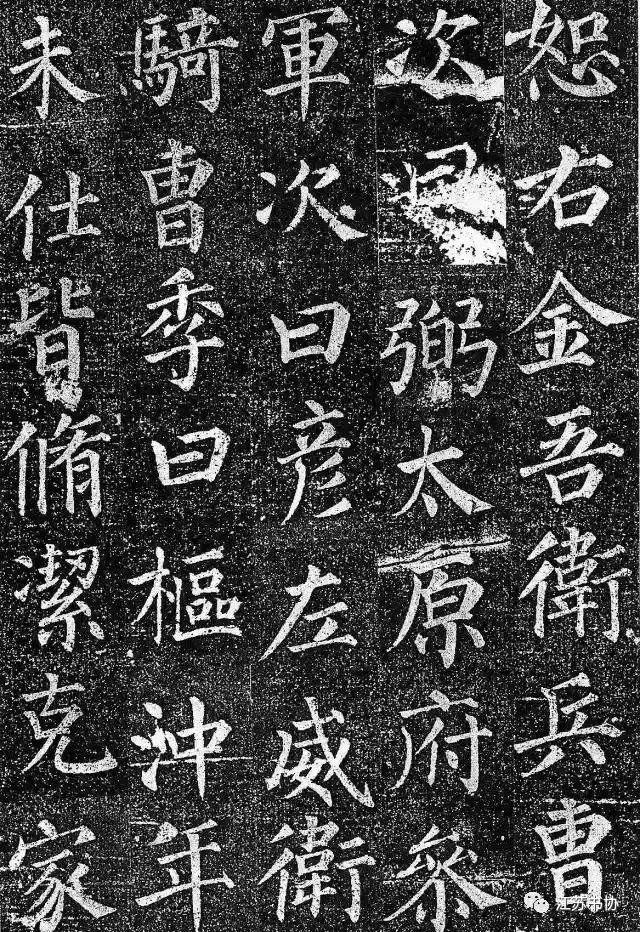 恕右金吾衛兵曹
次曰弼太原府叅
軍次曰彦左威衛
騎曹季曰樞沖年
未仕皆脩潔克家
江苏书协